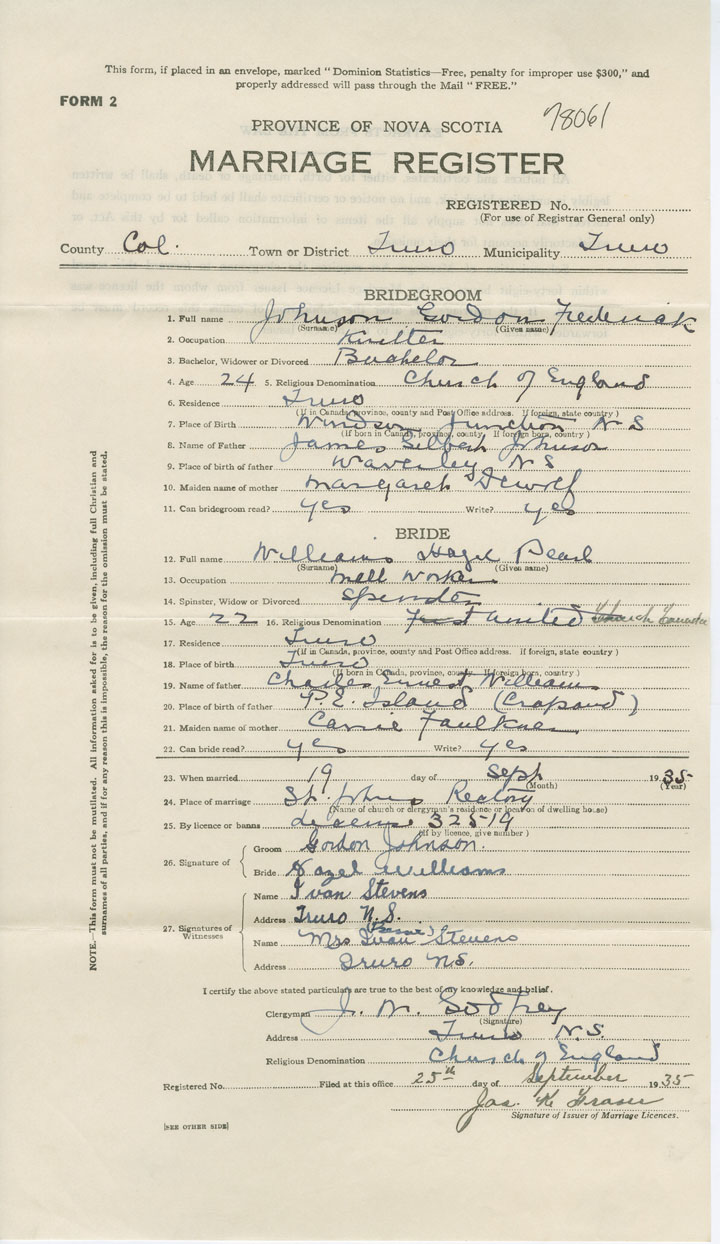 This form, if placed in an envelope, marked "Dominion Statistics—Free, penalty for improper use $300," and
properly addressed will pass through the Mail "FREE."
FORM 2
78061
PROVINCE OF NOVA SCOTIA
MARRIAGE REGISTER
REGISTERED No.
(For use of Registrar General only)
County Col. Town or District Truro Municipality Truro
BRIDEGROOM
1. Full name Johnson Gordon Frederick
(Surname) (Given name)
2. Occupation Knitter
3. Bachelor, Widower or Divorced Bachelor
4. Age 24 5. Religious Denomination Church of England
6. Residence Truro
(If in Canada, province, county and Post Office address. If foreign, state country)
7. Place of Birth Windsor Junction N S
(If born in Canada, province, county. If foreign born, country)
8. Name of Father James Johnson
9. Place of birth of father Waverley N S
10. Maiden name of mother Margaret Dewolf
11. Can bridegroom read? yes Write? yes
BRIDE
12. Full name Williams Hazel Pearl
(Surname) (Given name)
13. Occupation Mill Worker
14. Spinster, Widow or Divorced Spinster
15. Age 22 16. Religious Denomination First United Church Canada
17. Residence Truro
(If in Canada, province, county and Post Office address. If foreign, state country)
18. Place of birth Truro
(If born in Canada, province, county. If foreign born, country)
19. Name of father Charles Ernest Williams
20. Place of birth of father P. E. Island (Crapaud)
21. Maiden name of mother Carrie Faulkner
22. Can bride read? yes Write? yes
23. When married 19 day of Sept 1935
(Month) (Year)
24. Place of marriage St. Johns Rectory
(Name of church or clergyman's residence or location of dwelling house)
25. By licence or banns licence 32519
(If by licence, give number)
26. Signature of
Groom Gordon Johnson.
Bride Hazel Williams
27. Signatures of Witnesses
Name Ivan Stevens
Address Truro N.S.
Name Mrs Ivan Stevens
Address Truro N.S.
I certify the above stated particulars are true to the best of my knowledge and belief.
Clergyman J. M. Godfrey
(Signature)
Address Truro N.S.
Religious Denomination Church of England
Registered No. Filed at this office 25th day of September 1935
Jas. K. Fraser
Signature of Issuer of Marriage Licences.
[SEE OTHER SIDE]
NOTE.—This form must not be mutilated. All information asked for is to be given, including full Christian and
surnames of all parties, and if for any reason this is impossible, the reason for the omission must be stated.